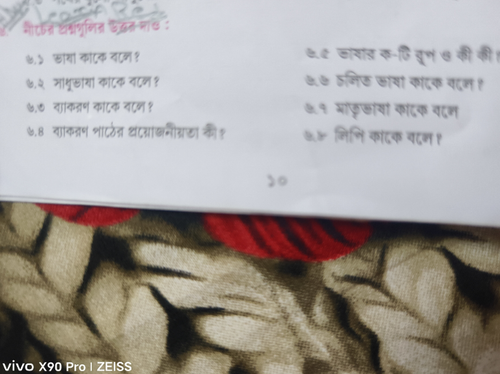 ৬. নীচের প্রশ্নগুলির উত্তর দাও :
৬.১ ভাষা কাকে বলে?
৬.২ সাধুভাষা কাকে বলে?
৬.৩ ব্যাকরণ কাকে বলে?
৬.৪ ব্যাকরণ পাঠের প্রয়োজনীয়তা কী?
৬.৫ ভাষার ক-টি রূপ ও কী কী?
৬.৬ চলিত ভাষা কাকে বলে?
৬.৭ মাতৃভাষা কাকে বলে
৬.৮ লিপি কাকে বলে?
১০
vivo X90 Pro | ZEISS